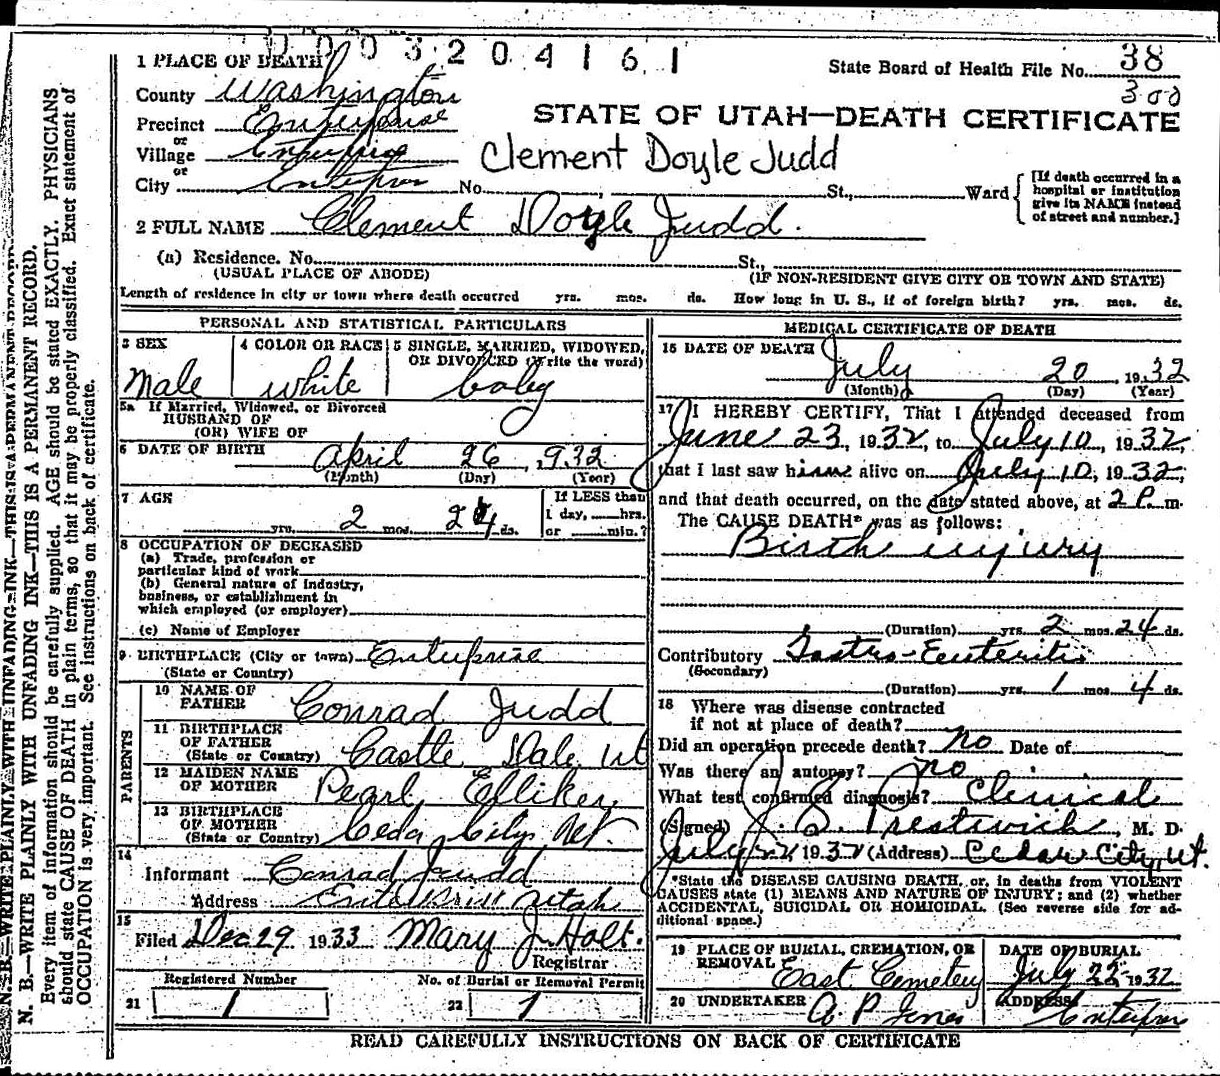 0003204161
1 PLACE OF DEATH
State Board of Health File No. 38
300
County Washington
STATE OF UTAH—DEATH CERTIFICATE
Precinct Enterprise
or
Village Enterprise
Clement Doyle Judd
or
City Enterprise No. St., Ward
[If death occurred in a
hospital or institution
give its NAME instead
of street and number.]
2 FULL NAME Clement Doyle Judd.
(a) Residence. No. St.,
(USUAL PLACE OF ABODE) (IF NON-RESIDENT GIVE CITY OR TOWN AND STATE)
Length of residence in city or town where death occurred yrs. mos. ds. How long in U. S., if of foreign birth? yrs. mos. ds.
PERSONAL AND STATISTICAL PARTICULARS
3 SEX
Male
4 COLOR OR RACE
white
5 SINGLE, MARRIED, WIDOWED,
OR DIVORCED (Write the word)
baby
5a If Married, Widowed, or Divorced
HUSBAND OF
(OR) WIFE OF
6 DATE OF BIRTH
April 26, 1932
(Month) (Day) (Year)
7 AGE
yrs. 2 mos. 24 ds.
If LESS than
1 day, hrs.
or min.?
8 OCCUPATION OF DECEASED
(a) Trade, profession or
particular kind of work
(b) General nature of industry,
business, or establishment in
which employed (or employer)
(c) Name of Employer
9 BIRTHPLACE (City or town) Enterprise
(State or Country)
PARENTS
10 NAME OF
FATHER Conrad Judd
11 BIRTHPLACE
OF FATHER
(State or Country) Castle Dale, Ut
12 MAIDEN NAME
OF MOTHER Pearl Elliker
13 BIRTHPLACE
OF MOTHER
(State or Country) Ceda City,
14
Informant Conrad Judd
Address Enterprise Utah
15
Filed Dec 29 1933 Mary J. Holt.
Registrar
Registered Number
21 1
No. of Burial or Removal Permit
22 1
MEDICAL CERTIFICATE OF DEATH
16 DATE OF DEATH
July 20, 1932
(Month) (Day) (Year)
17 I HEREBY CERTIFY, That I attended deceased from
June 23, 1932, to July 10, 1932,
that I last saw him alive on July 10, 1932,
and that death occurred, on the date stated above, at 2 P. m.
The CAUSE DEATH* was as follows:
Birth injury
(Duration) yrs. 2 mos. 24 ds.
Contributory Gastro-Enteritis
(Secondary)
(Duration) yrs. 1 mos. 4 ds.
18 Where was disease contracted
if not at place of death?
Did an operation precede death? No Date of
Was there an autopsy? no
What test confirmed diagnosis? Clinical
(Signed) J. S. Prestwich, M. D.
July 22 1932 (Address) Cedar City, Ut.
*State the DISEASE CAUSING DEATH, or, in deaths from VIOLENT
CAUSES state (1) MEANS AND NATURE OF INJURY; and (2) whether
ACCIDENTAL, SUICIDAL OR HOMICIDAL. (See reverse side for ad-
ditional space.)
19 PLACE OF BURIAL, CREMATION, OR
REMOVAL East Cemetery
DATE OF BURIAL
July 22 1932
20 UNDERTAKER
A. P. Jones
ADDRESS
Enterprise
READ CAREFULLY INSTRUCTIONS ON BACK OF CERTIFICATE
N. B.—WRITE PLAINLY WITH UNFADING INK—THIS IS A PERMANENT RECORD.
N. B.—WRITE PLAINLY WITH UNFADING INK—THIS IS A PERMANENT RECORD.
Every item of information should be carefully supplied. AGE should be stated EXACTLY. PHYSICIANS
should state CAUSE OF DEATH in plain terms, so that it may be properly classified. Exact statement of
OCCUPATION is very important. See instructions on back of certificate.